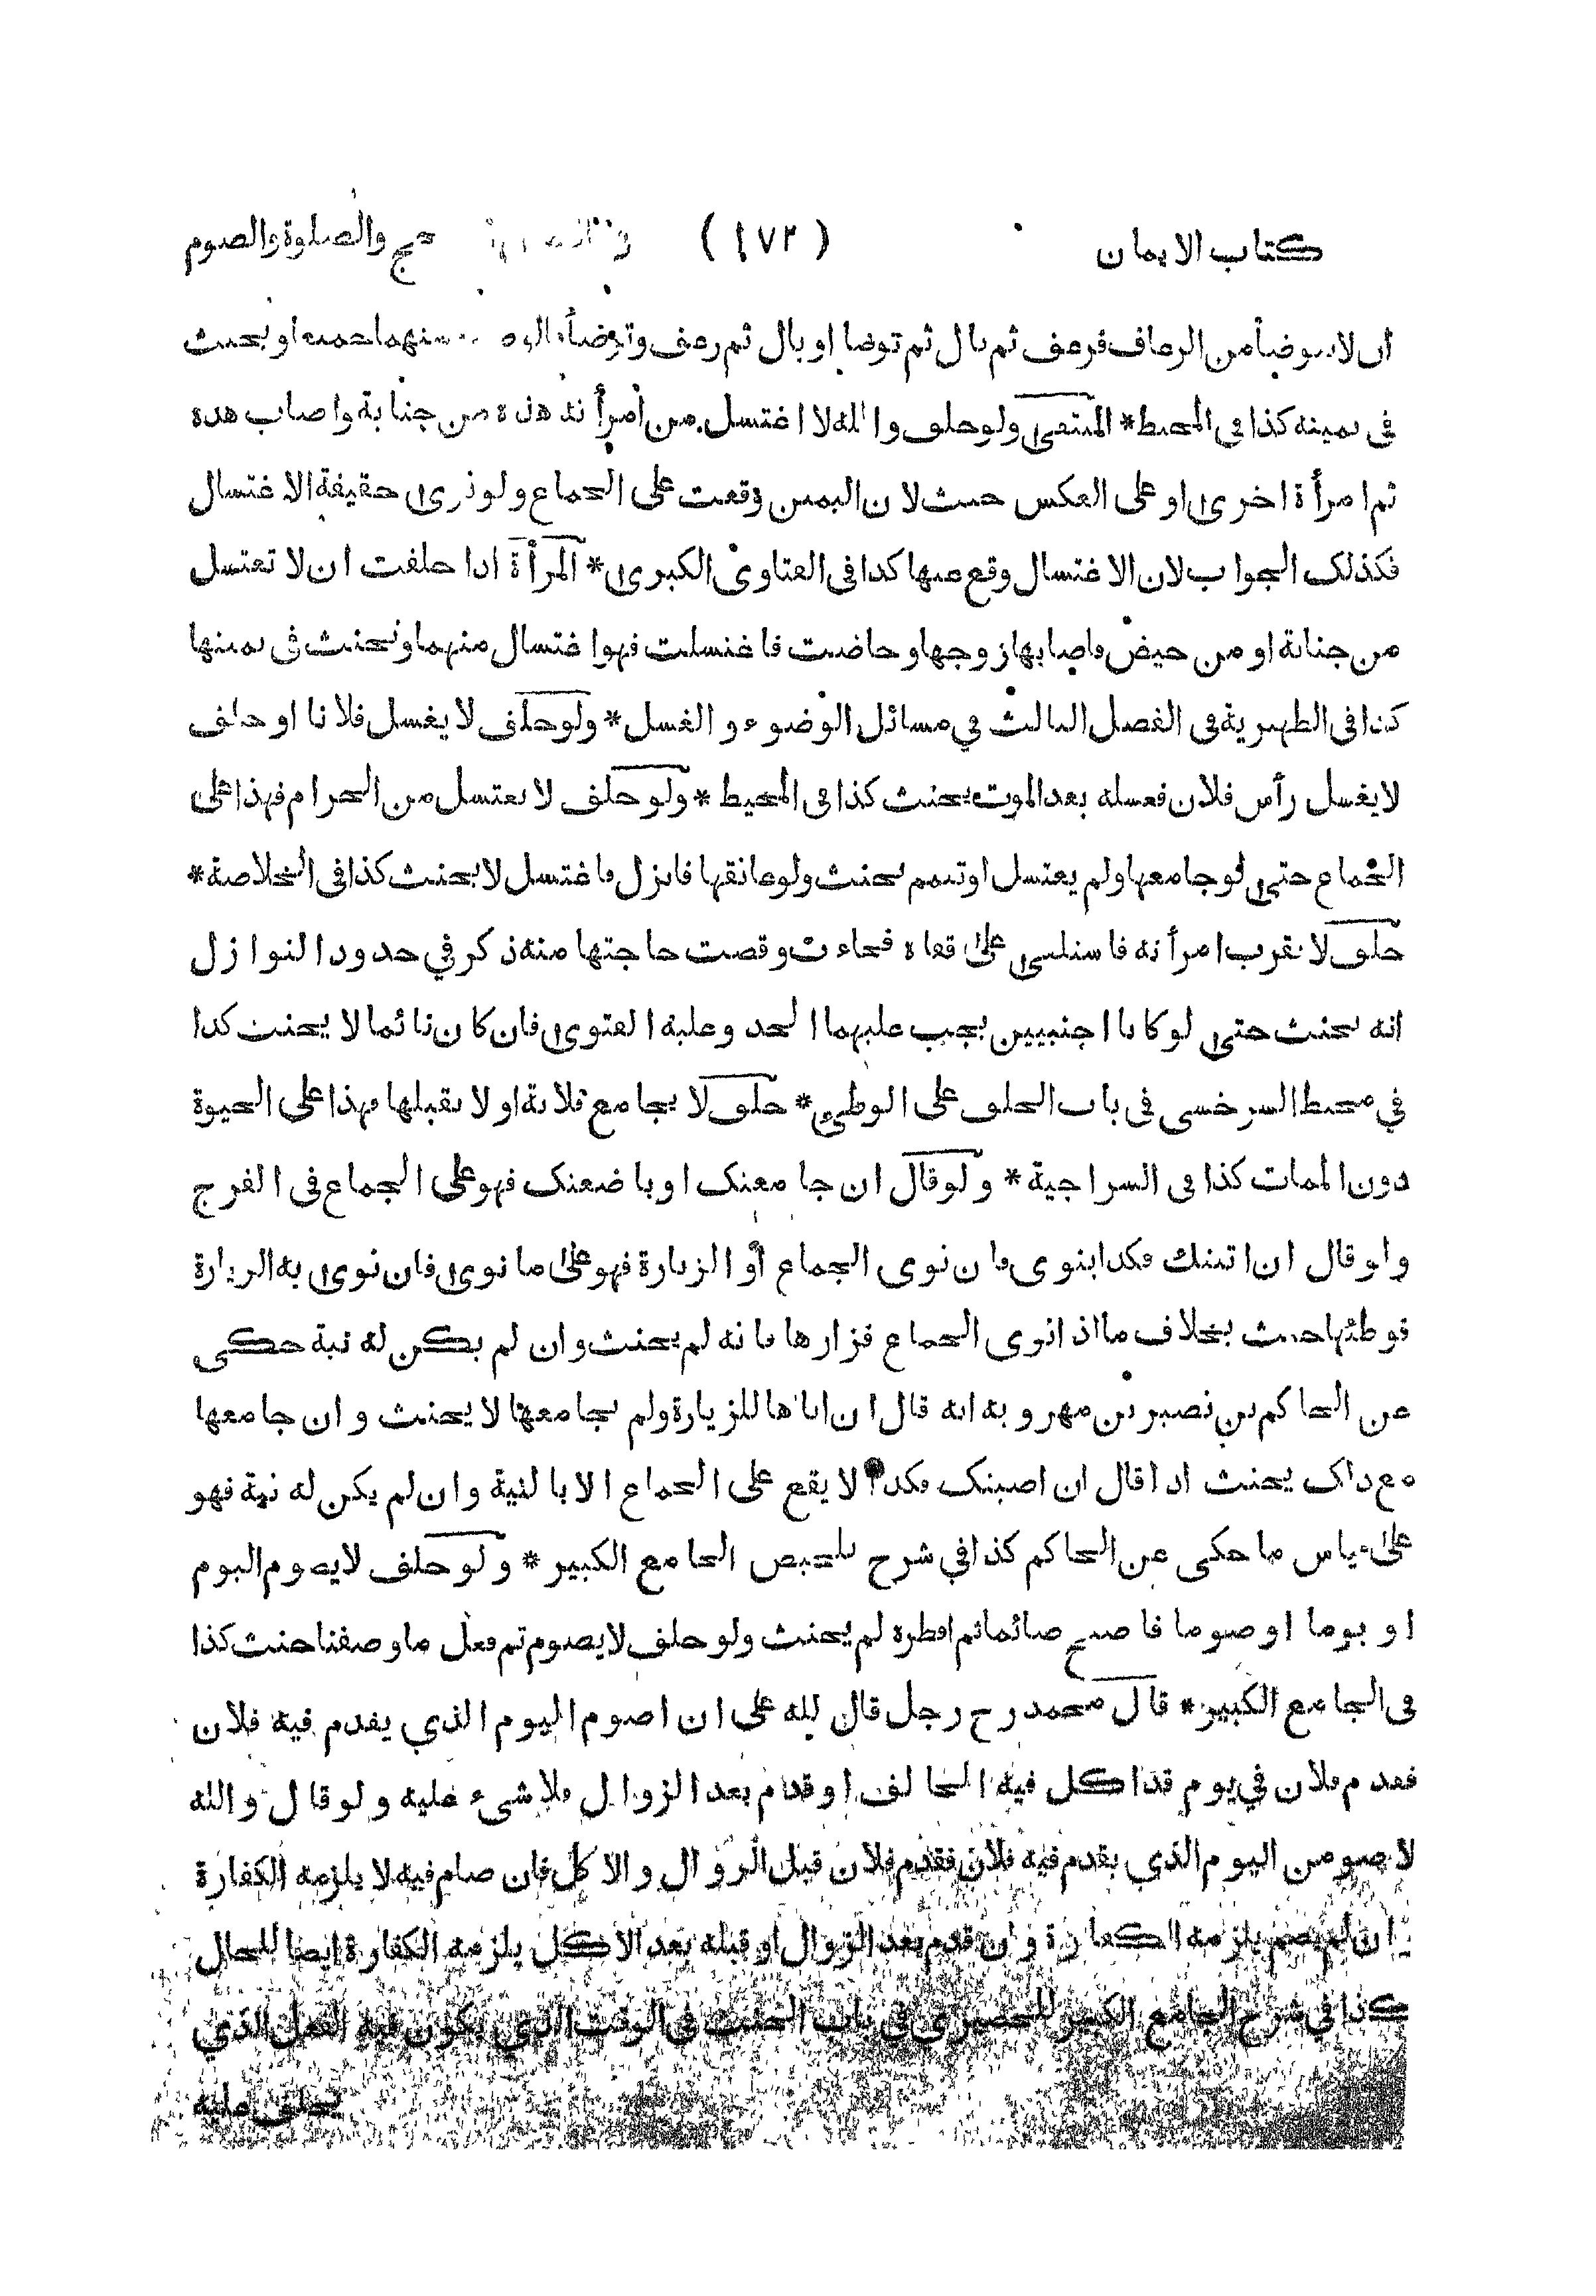 كتاب الايمان ( ١٧٢ ) حج والصلوة والصوم
ان لا يتوضأ من الرعاف فرعف ثم بال ثم توضا او بال ثم رعف وتوضأ منهما جميعا ويحنث
في يمينه كذا في المحيط * المنتقى ولو حلف والله لا اغتسل من امرأته هذه من جنابة واصاب هذه
ثم امرأة اخرى او على العكس حنث لان اليمين وقعت على الجماع ولو نوى حقيقة الاغتسال
فكذلك الجواب لان الاغتسال وقع عنها كذا في الفتاوى الكبرى * المرأة اذا حلفت ان لا تغتسل
من جنابة او من حيض فاصابها زوجها وحاضت فاغتسلت فهو اغتسال منهما وتحنث في يمينها
كذا في الظهيرية في الفصل الثالث في مسائل الوضوء والغسل * ولو حلف لا يغسل فلانا او حلف
لا يغسل رأس فلان فغسله بعد الموت يحنث كذا في المحيط * ولو حلف لا يغتسل من الحرام فهذا على
الجماع حتى لو جامعها ولم يغتسل او تيمم يحنث ولو عانقها فانزل فاغتسل لا يحنث كذا في الخلاصة *
حلف لا يقرب امرأته فاستلقى على قفاه فجاءت وقضت حاجتها منه ذكر في حدود النوازل
انه يحنث حتى لو كانا اجنبيين يجب عليهما الحد وعليه الفتوى فان كان نائما لا يحنث كذا
في محيط السرخسي في باب الحلف على الوطىء * حلف لا يجامع فلانة او لا يقبلها فهذا على الحيوة
دون الممات كذا في السراجية * ولو قال ان جامعتك او باضعتك فهو على الجماع في الفرج
ولو قال ان اتيتك فكذا ينوى فان نوى الجماع او الزيارة فهو على ما نوى فان نوى به الزيارة
فوطئها حنث بخلاف ما اذا نوى الجماع فزارها فانه لم يحنث وان لم يكن له نية حكى
عن الحاكم بن نصير بن مهروبه انه قال ان اتاها للزيارة ولم يجامعها لا يحنث وان جامعها
مع ذاك يحنث اذا قال ان اصبتك فكذا لا يقع على الجماع الا بالنية وان لم يكن له نية فهو
على قياس ما حكى عن الحاكم كذا في شرح تلخيص الجامع الكبير * ولو حلف لا يصوم اليوم
او يوما او صوما فاصبح صائما ثم افطره لم يحنث ولو حلف لا يصوم ثم فعل ما وصفنا حنث كذا
في الجامع الكبير * قال محمد رح رجل قال لله على ان اصوم اليوم الذي يقدم فيه فلان
فقدم فلان في يوم قد اكل فيه الحالف او قدم بعد الزوال فلا شيء عليه ولو قال والله
لاصومن اليوم الذي يقدم فيه فلان فقدم فلان قبل الزوال والاكل فان صام فيه لا يلزمه الكفارة
وان لم يصم يلزمه الكفارة وان قدم بعد الزوال او قبله بعد الاكل يلزمه الكفارة ايضا للحال
كذا في شرح الجامع الكبير للحصيرى في باب الحنث في الوقت الذي يكون فيه الفعل الذي
يحلف عليه